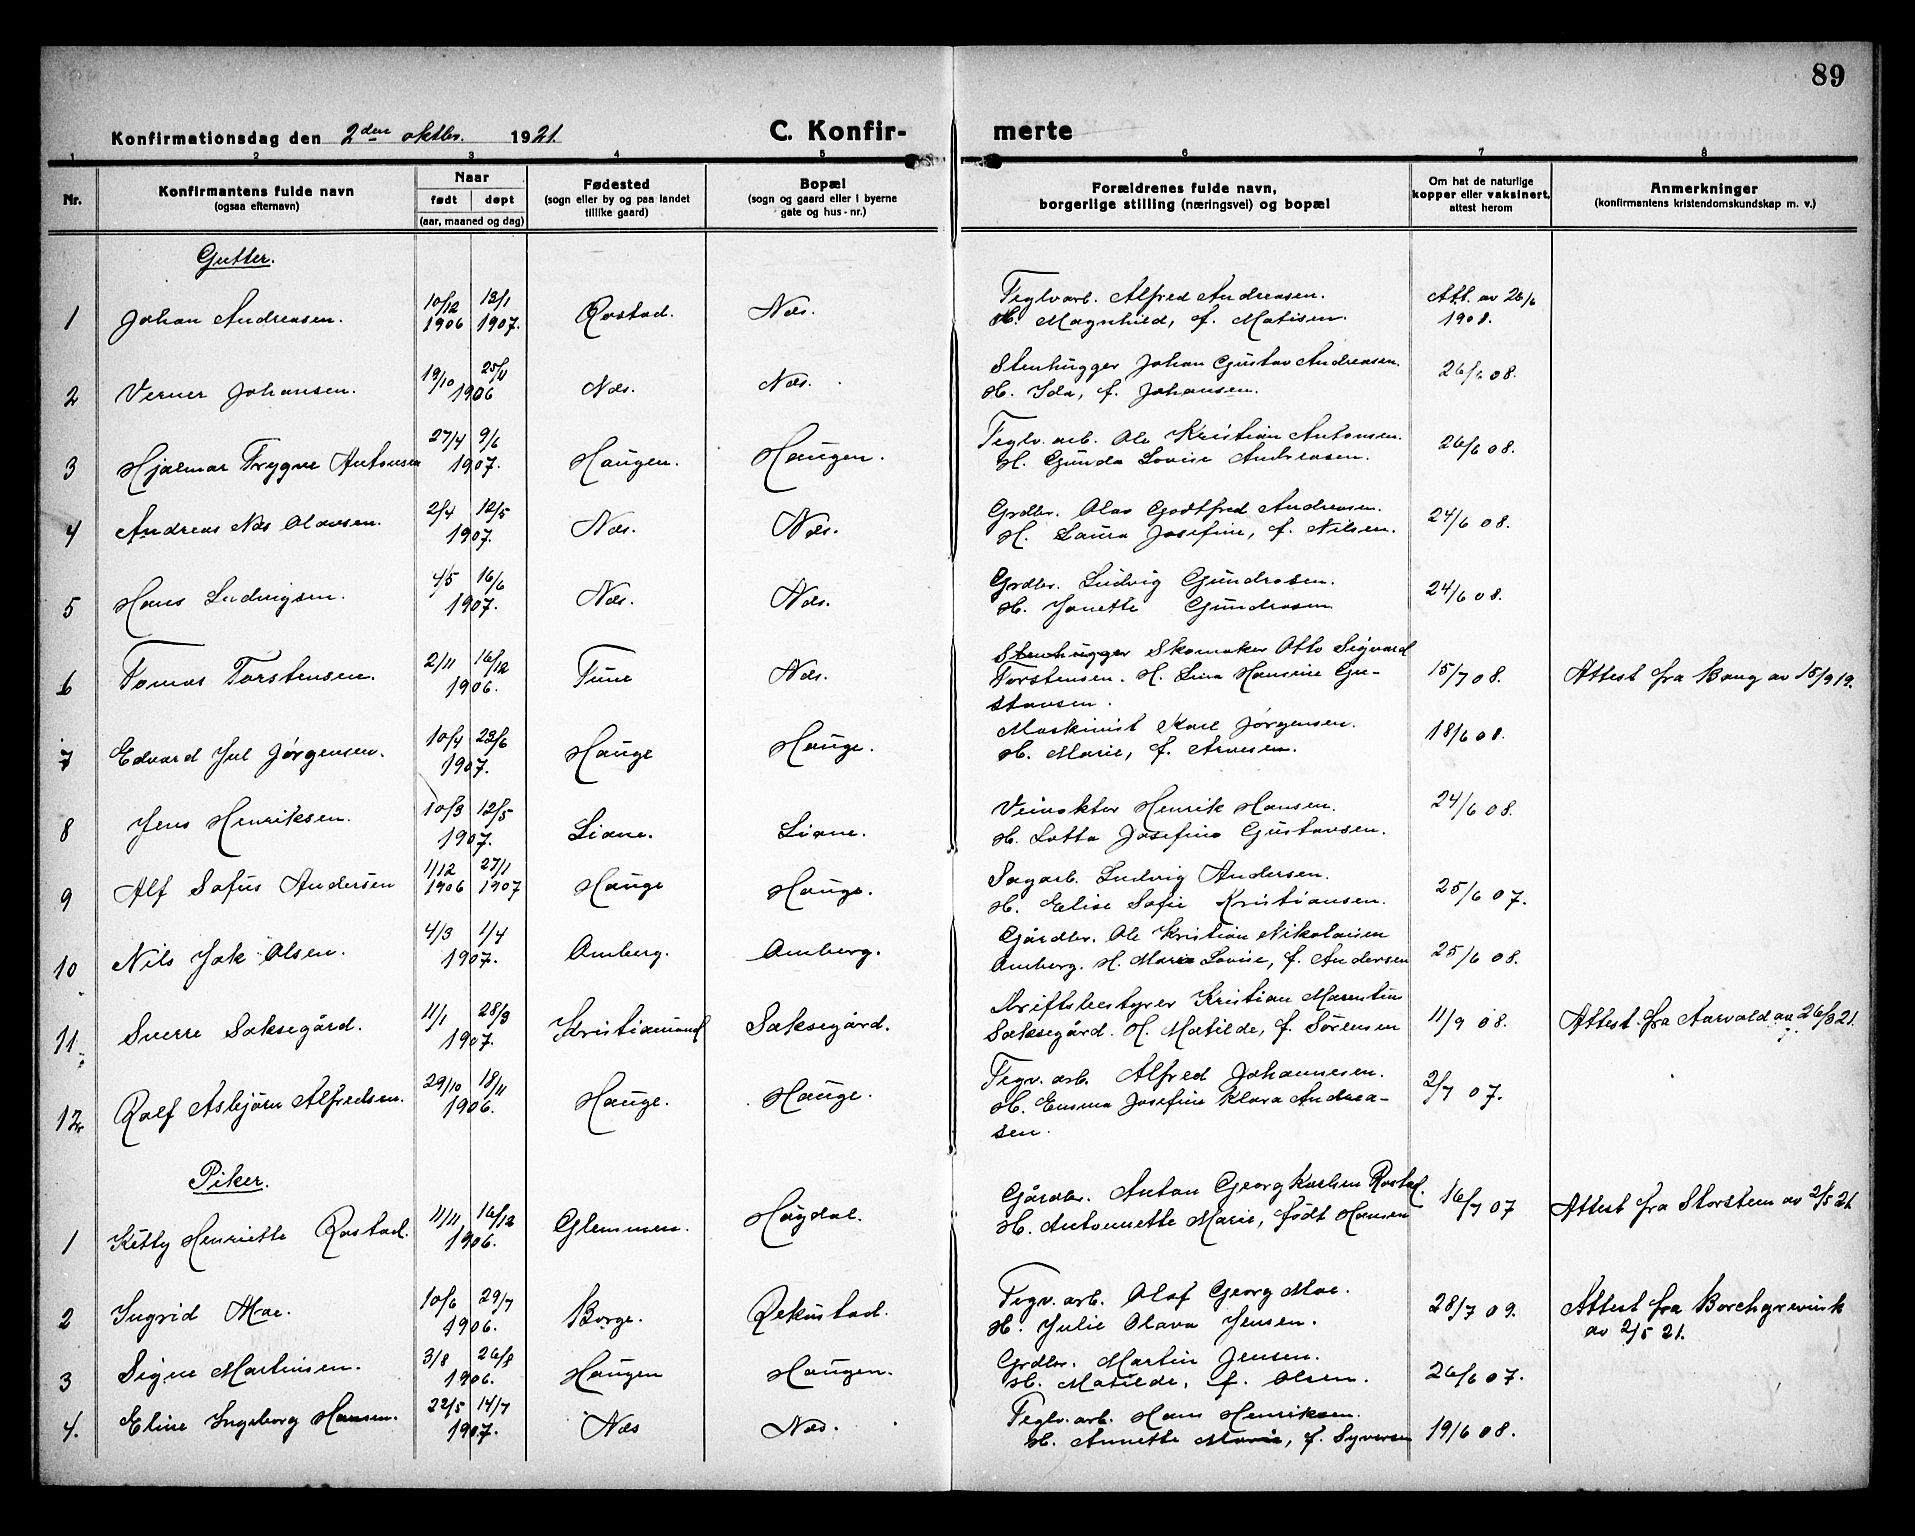 89
Konfirmationsdag den 2den oktbr. 1921.
C. Konfir-
merte
1 2 3 4 5 6 7 8
Nr.
Konfirmantens fulde navn
(ogsaa efternavn)
Naar
født døpt
(aar, maaned og dag)
Fødested
(sogn eller by og paa landet
tillike gaard)
Bopæl
(sogn og gaard eller i byerne
gate og hus-nr.)
Forældrenes fulde navn,
borgerlige stilling (næringsvei) og bopæl
Om hat de naturlige
kopper eller vaksinert,
attest herom
Anmerkninger
(konfirmantens kristendomskundskap m. v.)
Gutter.
1 Johan Andreasen. 10/12 1906 13/1 1907. Rostad. Næs. Teglvarb. Alfred Andreasen. Att. av 26/6
H. Magnhild, f. Matisen. 1908.
2 Verner Johansen. 19/10 25/11 1906 Næs. Næs. Stenhugger Johan Gustav Andreasen. 26/6 08.
H. Ida, f. Johansen.
3 Hjalmar Trygve Antonsen 27/4 9/6 1907. Haugen. Haugen. Teglv. arb. Ole Kristian Antonsen. 26/6 08.
H. Gunda Lovise Andreasen.
4 Andreas Næs Olavsen. 2/4 12/5 1907. Næs. Næs. Grdbr. Olav Godtfred Andreasen. 24/6 08.
H. Laura Josefine, f. Nilsen.
5 Hans Ludvigsen. 4/5 16/6 1907. Næs. Næs. Grdbr. Ludvig Gundrosen. 24/6 08.
H. Janette Gundrosen
6 Tomas Torstensen. 2/11 16/12 1906. Tune Næs. Stenhugger Skomaker Otto Sigvard
Torstensen. H. Lina Hansine Gu- 15/7 08. Attest fra Baug av 15/9 19.
stavsen.
7 Edvard Jul Jørgensen. 10/4 23/6 1907. Hauge Hauge. Maskinist Karl Jørgensen. 18/6 08.
H. Marie, f. Arvesen.
8 Jens Henriksen. 10/3 12/5 1907. Liane. Liane. Veivokter Henrik Hansen. 24/6 08.
H. Lotta Josefine Gustavsen.
9 Alf Sofus Andersen 1/12 1906 27/1 1907 Hauge Hauge. Sagarb. Ludvig Andersen. 25/6 07.
H. Elise Sofie Kristiansen.
10 Nils Jak. Olsen. 4/3 1/4 1907. Omberg. Omberg. Gårdbr. Ole Kristian Nikolaisen
Omberg. H. Maria Lovise, f. Andersen 25/6 08.
11. Sverre Saksegård. 11/1 28/3 1907. Kristiansand Saksegård. Driftsbestyrer Kristian Marentius
Saksegård. H. Matilde, f. Sørensen 11/9 08. Attest fra Aarvold av 26/8 21.
12. Rolf Asbjørn Alfredsen. 29/10 18/11 1906. Hauge. Hauge. Tegv. arb. Alfred Johannesen. 2/7 07.
H. Emma Josefine Klara Andrea-
sen.
Piker.
1 Kitty Henriette Rostad. 11/11 16/12 1906. Glemmen. Høgdal. Gårdbr. Anton Georg Karlsen Rostad. 16/7 07 Attest fra Storsten av 2/5 21.
H. Antonnette Marie, født Hansen
2 Ingrid Moe. 10/6 29/7 1906. Borge. Rekustad. Tegv. arb. Olaf Georg Moe. 28/7 09. Attest fra Borchgrevink
H. Julie Olava Jensen. av 2/5 21.
3 Signe Martinsen. 3/8 26/8 1906. Haugen Haugen. Grdbr. Martin Jensen. 26/6 07.
H. Matilde, f. Olsen.
4. Eline Ingeborg Hansen. 22/5 14/7 1907. Næs Næs. Teglv. arb. Hans Henriksen. 19/6 08.
H. Annette Marie, f. Syversen